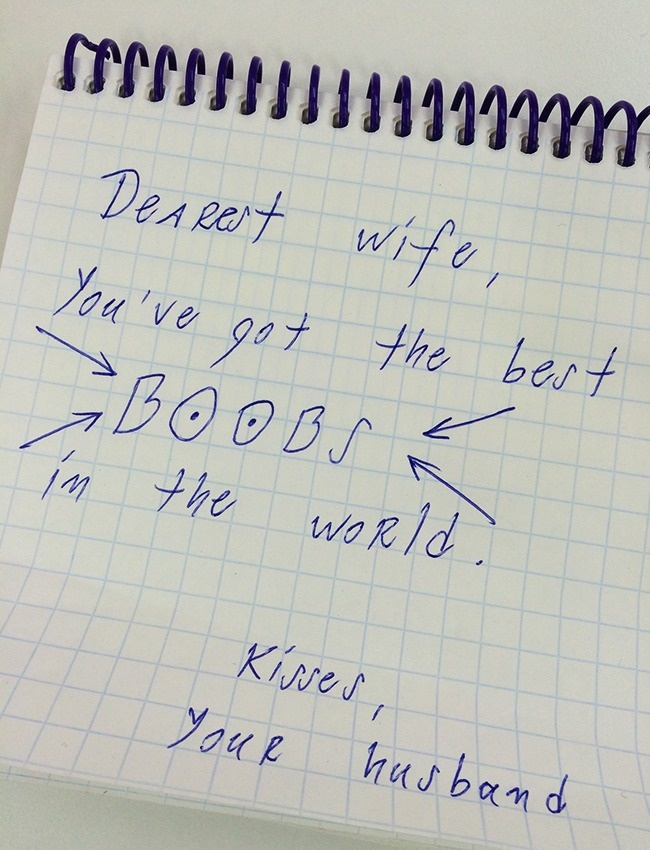 Dearest wife,
You've got the best
BOOBS
in the world.
Kisses,
Your husband